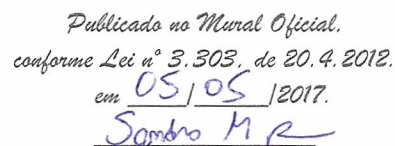 Publicado no Mural Oficial,
conforme Lei nº 3.303, de 20.4.2012.
em 05/05/2017.